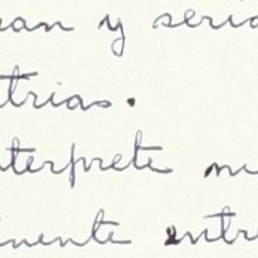 ran y seri
trias.
nterprete
nente entre